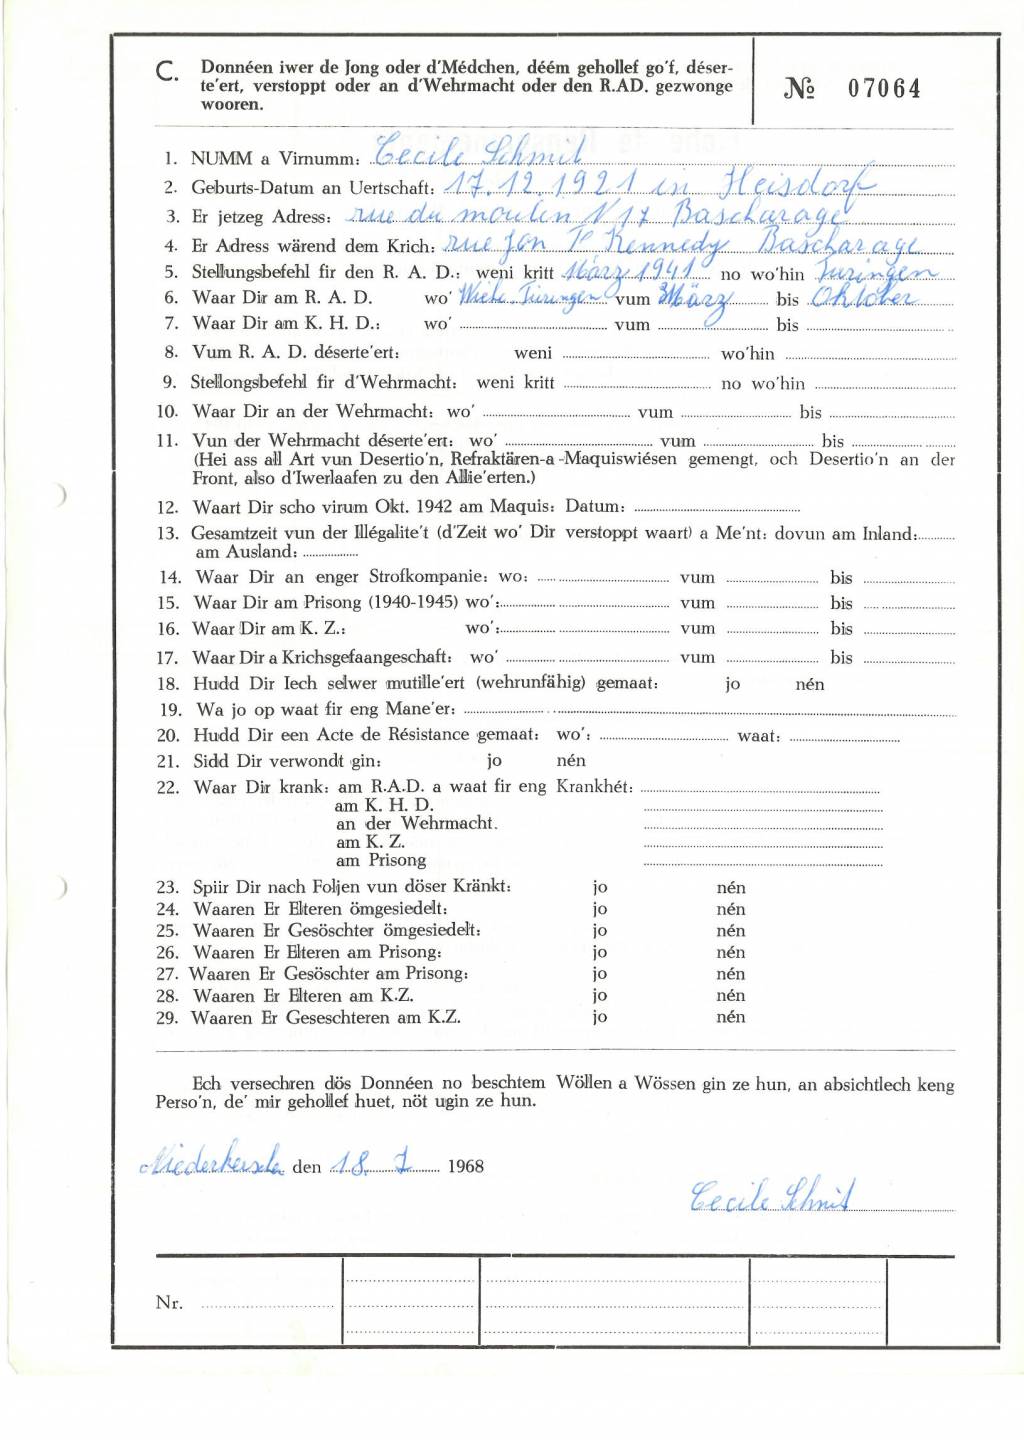 C. Donnéen iwer de Jong oder d'Médchen, déém gehollef go'f, déser-
te'ert, verstoppt oder an d'Wehrmacht oder den R.AD. gezwonge
wooren.
№ 07064
1. NUMM a Virnumm: Cecile Schmit
2. Geburts-Datum an Uertschaft: 17.12.1921 in Heisdorf
3. Er jetzeg Adress: rue du moulin N 17 Bascharage
4. Er Adress wärend dem Krich: rue Jon F Kennedy Bascharage
5. Stellungsbefehl fir den R. A. D.: weni kritt März 1941 no wo'hin Turingen
6. Waar Dir am R. A. D. wo' Wiehe Türingen vum März bis Oktober
7. Waar Dir am K. H. D.: wo' vum bis
8. Vum R. A. D. déserte'ert: weni wo'hin
9. Stellongsbefehl fir d'Wehrmacht: weni kritt no wo'hin
10. Waar Dir an der Wehrmacht: wo' vum bis
11. Vun der Wehrmacht déserte'ert: wo' vum bis
(Hei ass all Art vun Desertio'n, Refraktären-a-Maquiswiésen gemengt, och Desertio'n an der
Front, also d'Iwerlaafen zu den Allie'erten.)
12. Waart Dir scho virum Okt. 1942 am Maquis: Datum:
13. Gesamtzeit vun der Illégalite't (d'Zeit wo' Dir verstoppt waart) a Me'nt: dovun am Inland:
am Ausland:
14. Waar Dir an enger Strofkompanie: wo: vum bis
15. Waar Dir am Prisong (1940-1945) wo': vum bis
16. Waar Dir am K. Z.: wo': vum bis
17. Waar Dir a Krichsgefaangeschaft: wo' vum bis
18. Hudd Dir Iech selwer mutille'ert (wehrunfähig) gemaat: jo nén
19. Wa jo op waat fir eng Mane'er:
20. Hudd Dir een Acte de Résistance gemaat: wo': waat:
21. Sidd Dir verwondt gin: jo nén
22. Waar Dir krank: am R.A.D. a waat fir eng Krankhét:
am K. H. D.
an der Wehrmacht.
am K. Z.
am Prisong
23. Spiir Dir nach Foljen vun döser Kränkt: jo nén
24. Waaren Er Elteren ömgesiedelt: jo nén
25. Waaren Er Gesöschter ömgesiedelt: jo nén
26. Waaren Er Elteren am Prisong: jo nén
27. Waaren Er Gesöschter am Prisong: jo nén
28. Waaren Er Elteren am K.Z. jo nén
29. Waaren Er Geseschteren am K.Z. jo nén
Ech versechren dös Donnéen no beschtem Wöllen a Wössen gin ze hun, an absichtlech keng
Perso'n, de' mir gehollef huet, nöt ugin ze hun.
den 18. 7 1968
Cecile Schmit
Nr.